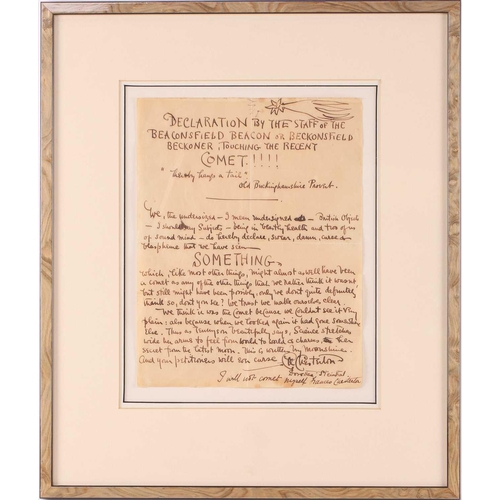 DECLARATION BY THE STAFF OF THE
BEACONSFIELD BEACON OR BECKONSFIELD
BECKONER, TOUCHING THE RECENT
COMET.!!!!
"thereby hangs a tail".
Old Buckinghamshire Proverb.
We, the undersized – I mean undersigned – British Objects
– I should say Subjects – being in beastly health and two of us
of sound mind – do hereby declare, swear, damn, curse &
blaspheme that we have seen
SOMETHING
which, like most other things, might almost as well have been
a comet as any of the other things that we rather think it wasn't
but still might have been possibly, only we don't quite definitely
think so, don't you see? We trust we make ourselves clear.
– We think it was the Comet because we couldn't see it very
plain: also because when we looked again it had gone somewhere
else. Thus as Tennyson beautifully says, Science stretches
wide her arms to feel from world to world & charms her
secret from the latest moon. This is written by moonshine.
And your petitioners will ever curse G K Chesterton
I will not comet myself Frances Chesterton